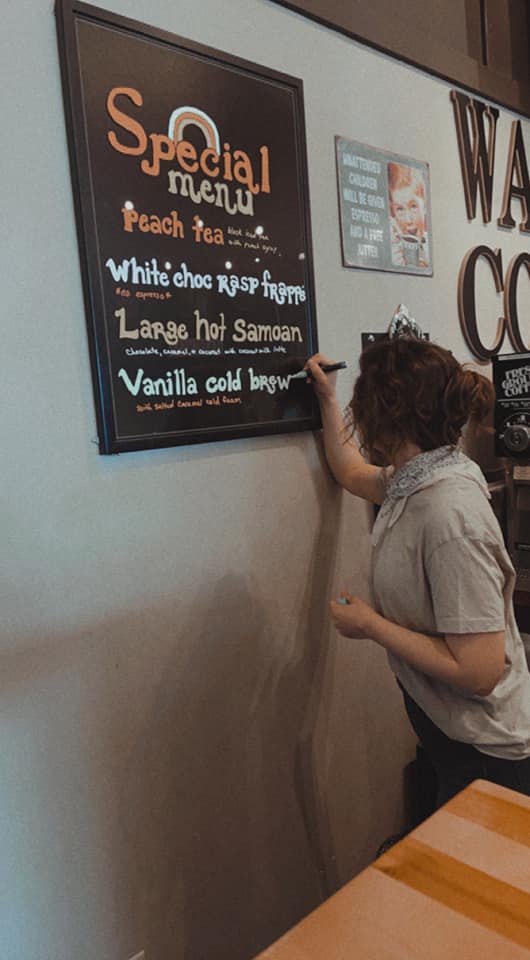 Special
menu
Peach tea
black iced tea
with peach syrup.
White choc Rasp frappe
*no espresso*
Large hot Samoan
chocolate, caramel, + coconut with coconut milk latte
Vanilla cold brew
with salted caramel cold foam
UNATTENDED
CHILDREN
WILL BE GIVEN
ESPRESSO
AND A FREE
KITTEN
WA
CO
FRES
GROU
COFF